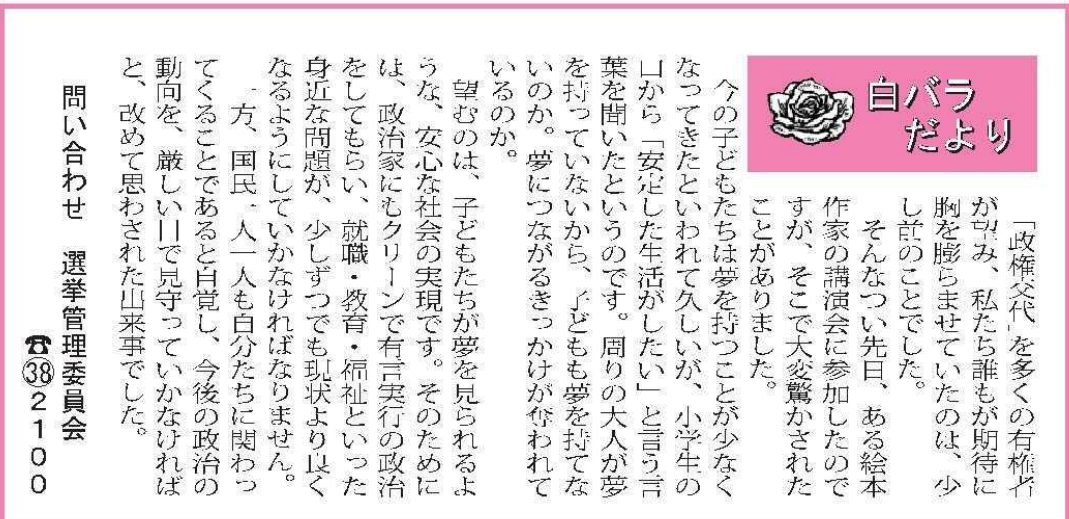 白バラ
だより
「政権交代」を多くの有権者
が望み、私たち誰もが期待に
胸を膨らませていたのは、少
し前のことでした。
そんなつい先日、ある絵本
作家の講演会に参加したので
すが、そこで大変驚かされた
ことがありました。
今の子どもたちは夢を持つことが少なく
なってきたといわれて久しいが、小学生の
口から「安定した生活がしたい」と言う言
葉を聞いたというのです。周りの大人が夢
を持っていないから、子どもも夢を持てな
いのか。夢につながるきっかけが奪われて
いるのか。
望むのは、子どもたちが夢を見られるよ
うな、安心な社会の実現です。そのために
は、政治家にもクリーンで有言実行の政治
をしてもらい、就職・教育・福祉といった
身近な問題が、少しずつでも現状より良く
なるようにしていかなければなりません。
一方、国民一人一人も自分たちに関わっ
てくることであると自覚し、今後の政治の
動向を、厳しい目で見守っていかなければ
と、改めて思わされた出来事でした。
問い合わせ 選挙管理委員会
☎㊳2100